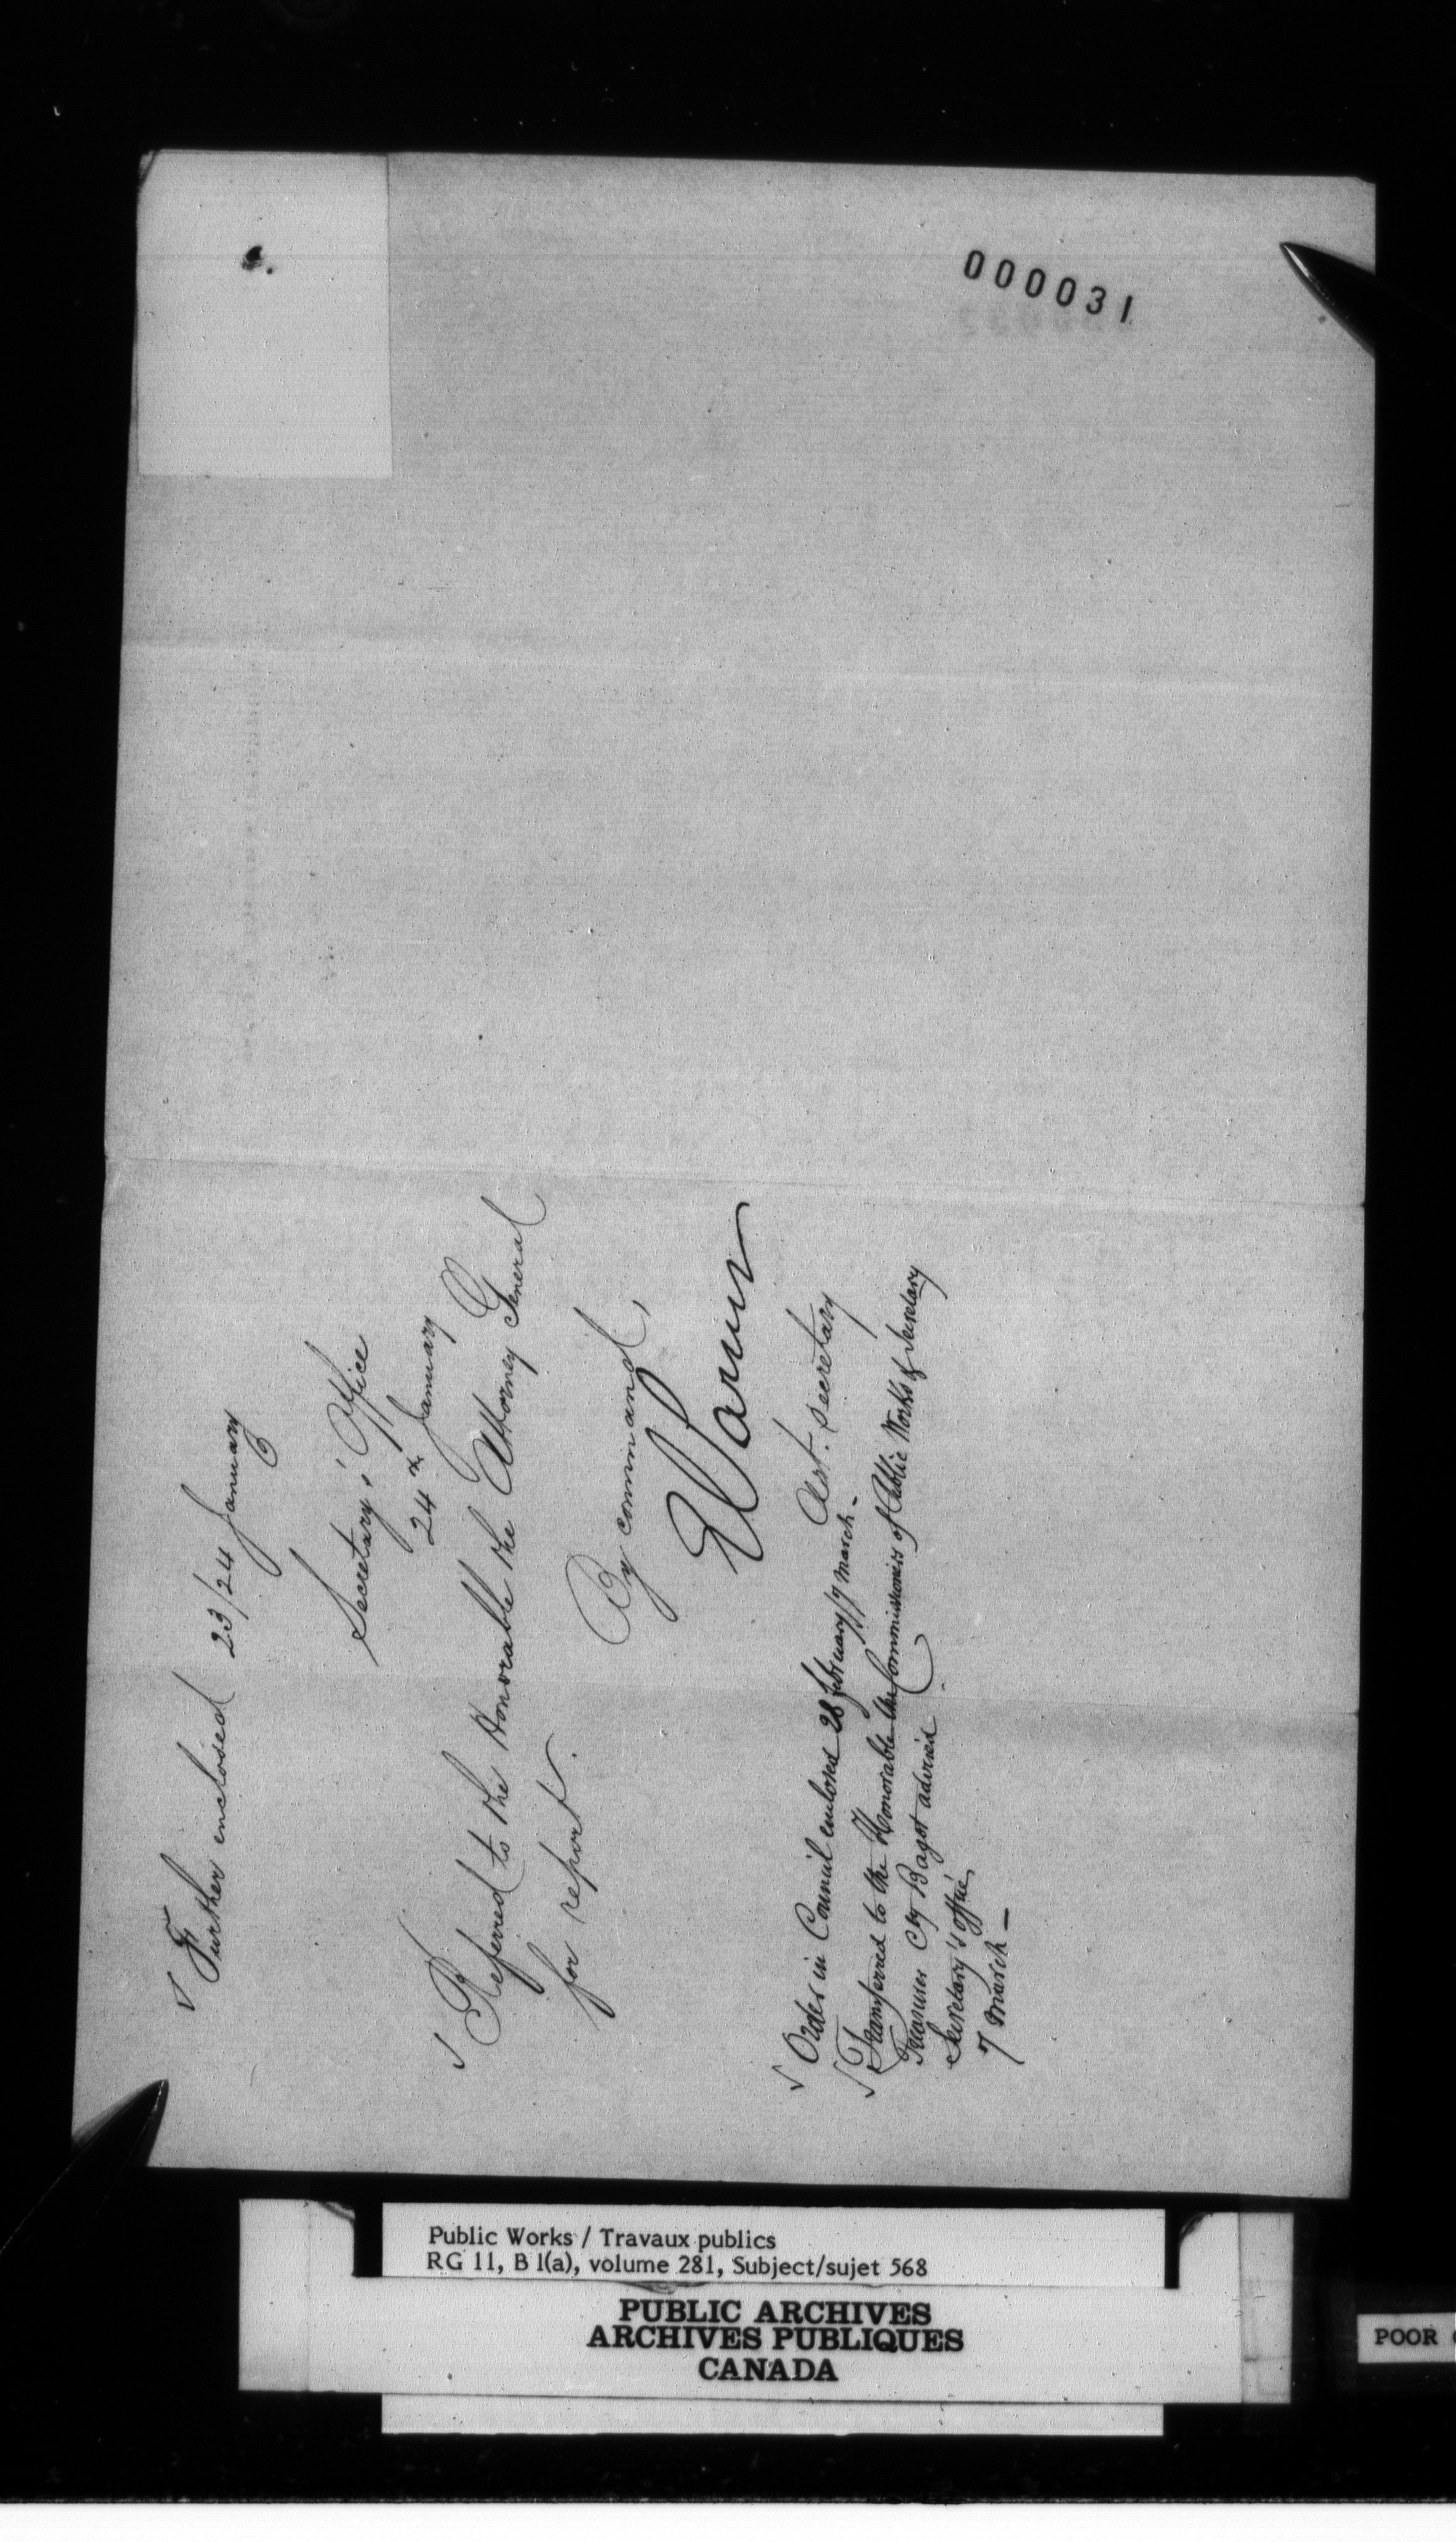 000031
√ Further enclosed 23/24 January
Secretary's Office
24th January
√ Referred to the Honorable the Attorney General
for report.
By command,
E Parent
Asst. Secretary
√ Order in Council enclosed 28 february/7 March —
√ Transferred to the Honorable the Commissioners of Public Works & Secretary
Treasurer Cty Bagot advised
Secretary's office
7 March —
Public Works / Travaux publics
RG 11, B 1(a), volume 281, Subject/sujet 568
PUBLIC ARCHIVES
ARCHIVES PUBLIQUES
CANADA
POOR